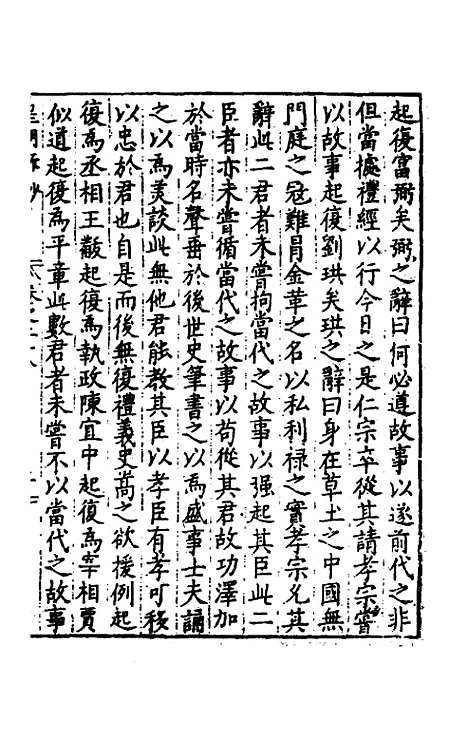 起復富弼矣弼之辭曰何必遵故事以遂前代之非
但當據禮經以行今日之是仁宗卒從其請孝宗嘗
以故事起復劉珙矣珙之辭曰身在草土之中國無
門庭之冦難冒金革之名以私利禄之實孝宗允其
辭此二君者未嘗拘當代之故事以强起其臣此二
臣者亦未嘗循當代之故事以苟從其君故功澤加
於當時名聲垂於後世史筆書之以為盛事士夫誦
之以為美談此無他君能教其臣以孝臣有孝可移
以忠於君也自是而後無復禮義史嵩之欲援例起
復為丞相王黻起復為執政陳宜中起復為宰相賈
似道起復為平章此數君者未嘗不以當代之故事